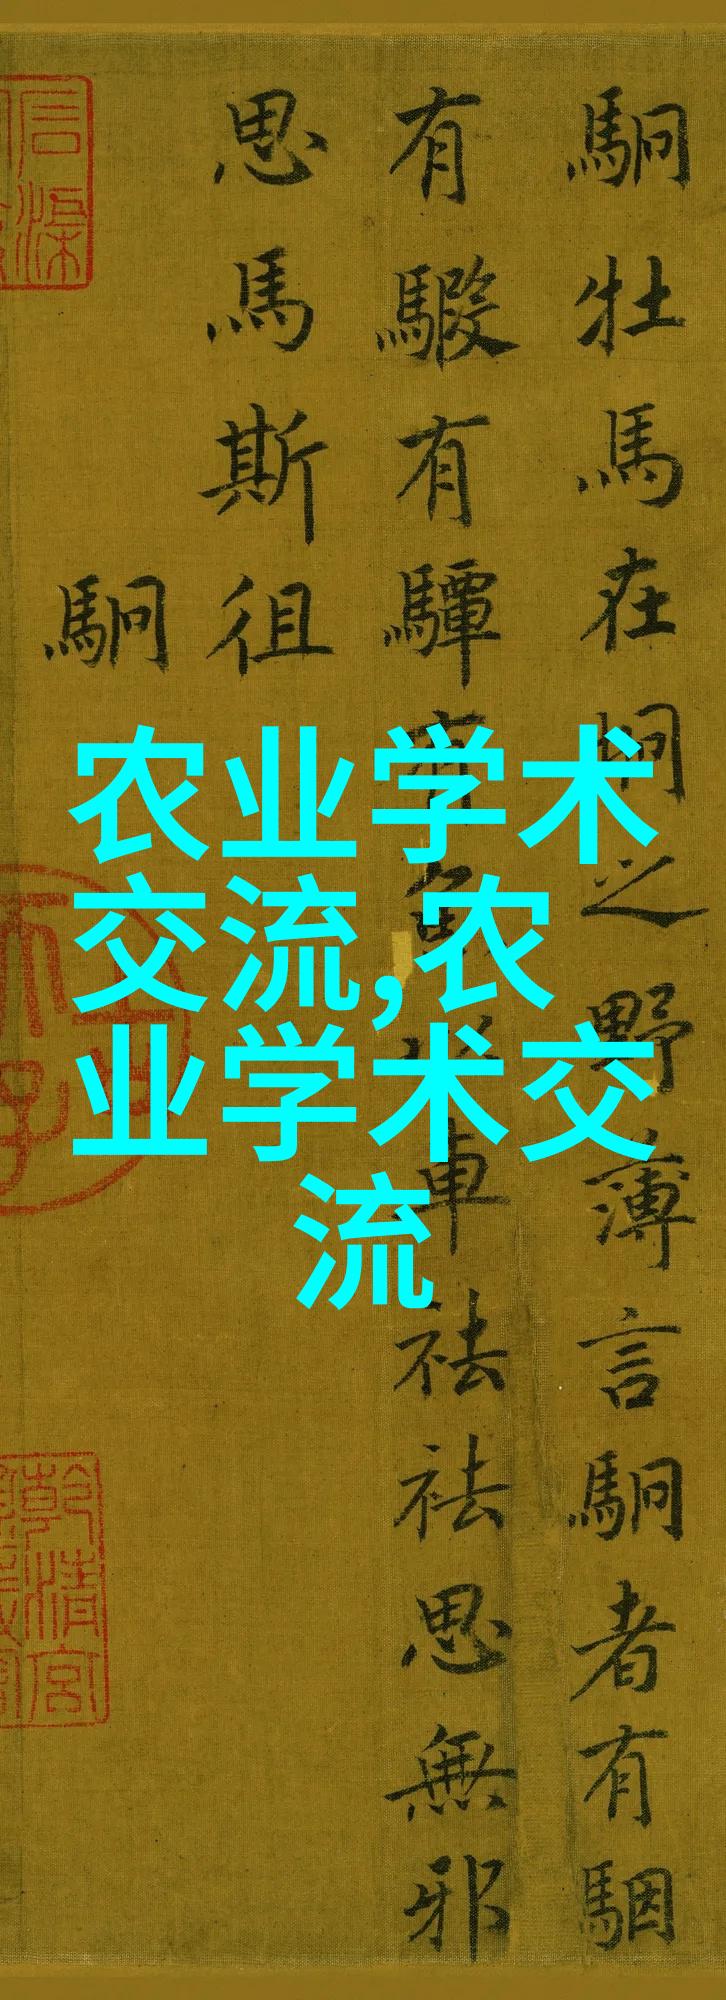 駉牡馬在坰之野薄言駉者有駰
有騢有驔有魚以車祛祛思無邪
思馬斯徂
駉
农业学术
交流,农
业学术交
流